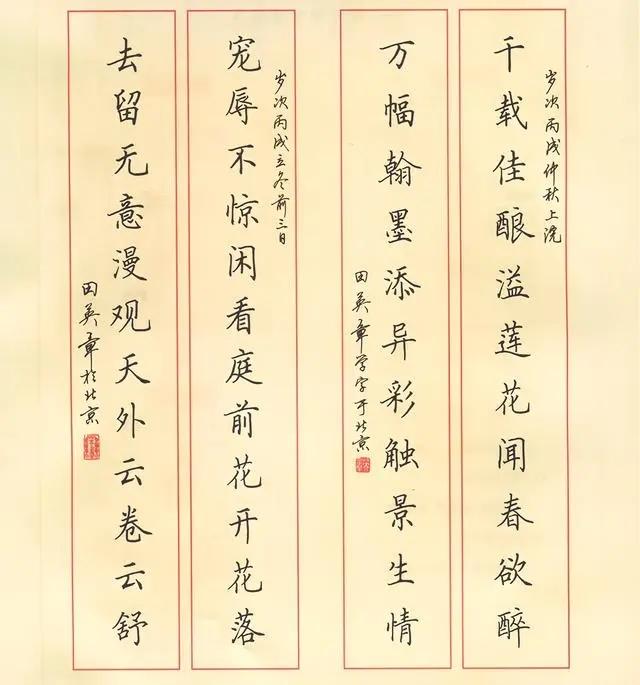 千载佳酿溢莲花闻春欲醉
岁次丙戌仲秋上浣
万幅翰墨添异彩触景生情
田英章学字于北京
宠辱不惊闲看庭前花开花落
岁次丙戌立冬前三日
去留无意漫观天外云卷云舒
田英章于北京